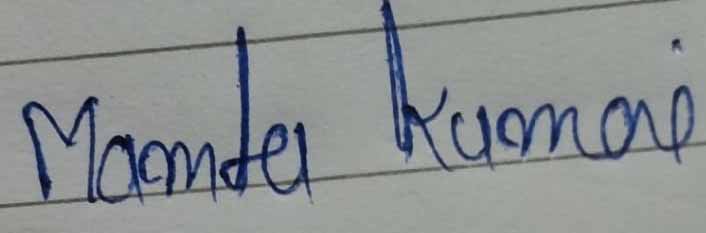 Mamta Kumari